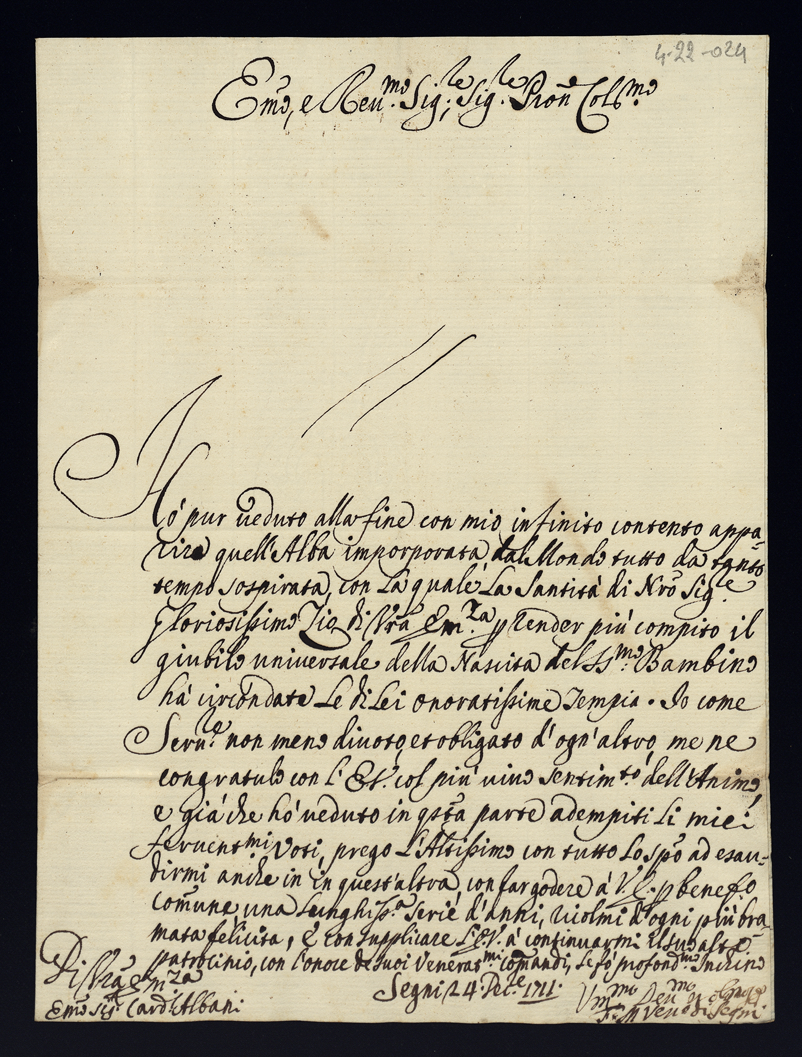 4-22-024
Emo, e Reumo. Sigre, Sigre. Prone Colmo.
Hó pur ueduto alla fine con mio infinito contento appa-
rire quell'Alba imporporata dal Mondo tutto da tanto
tempo sospirata, con la quale La Santitá di Nro Sigre.
Gloriosissimo Zio di Vra Emza. p render piú compito il
giubilo uniuersale della Nascita del SSmo. Bambino
há circondate Le di Lei onoratissime Tempia. Io come
Serure. non meno diuoto, et obligato d'ogn'altro, me ne
congratulo con l'E.V. col piú uiuo sentimto. dell'Animo,
e giá che hó ueduto in qsta parte adempiti Li miei
feruentmi. Voti, prego L'Altissimo con tutto lo spo ad esau-
dirmi anche in in quest'altra, con far godere á V.E. p benefo.
comune una Lunghissa. serie d'anni, ricolmi d'ogni piú bra-
mata felicitá; E con supplicare L'E.V. á continuarmi il suo alto
patrocinio, con l'onore de suoi Veneratmi. comandi, Le fó profondmo. Inchino
Di Vra Emza
Segni 24 Dece. 1711.
Emo Sigr. Cardl. Albani.
Vmmo Deumo et obligo
F. M Veno di Segni